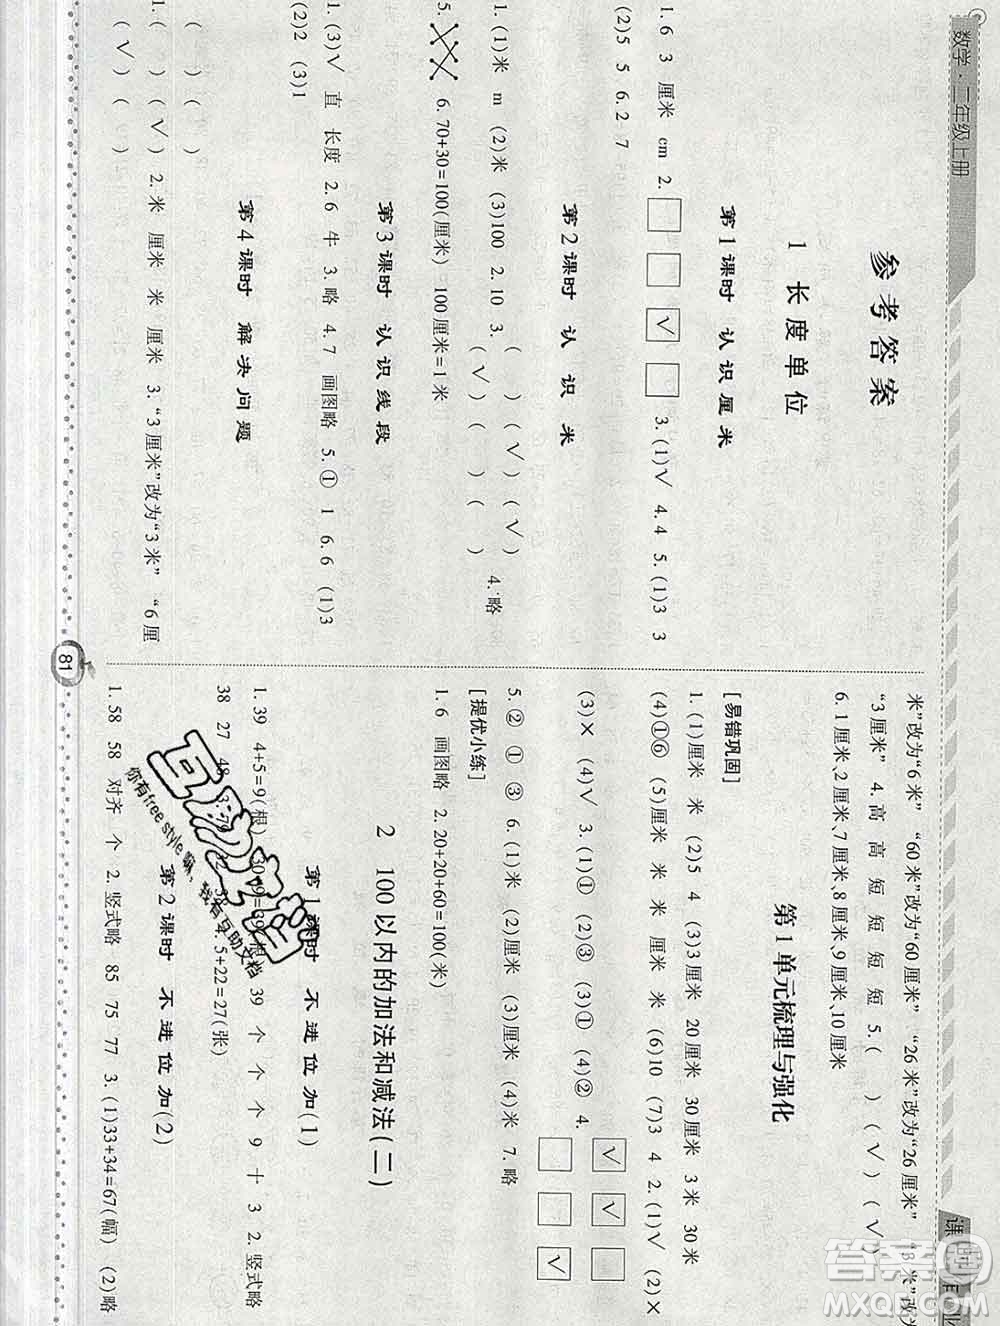 数学·二年级上册
参考答案
1 长度单位
第1课时 认识厘米
1. 6 3 厘米 cm 2. □ □ ☑ □ 3. (1)√ 4. 4 5. (1)3 3
(2)5 5 6. 2 7
第2课时 认识米
1. (1)米 m (2)米 (3)100 2. 10 3. ( ) (√) (√)
(√) ( ) ( ) 4. 略
5. 6. 70+30=100(厘米) 100厘米=1米
第3课时 认识线段
1. (3)√ 直 长度 2. 6 牛 3. 略 4. 7 画图略 5. ① 1 6. 6 (1)3
(2)2 (3)1
第4课时 解决问题
1. ( ) ( ) (√) 2. 米 厘米 米 厘米 3. “3厘米”改为“3米” “6厘
(√) ( )
米”改为“6米” “60米”改为“60厘米” “26米”改为“26厘米” “3米”改为
“3厘米” 4. 高 高 短 短 短 5. ( ) (√) (√)
6. 1厘米、2厘米、7厘米、8厘米、9厘米、10厘米
第1单元梳理与强化
[易错巩固]
1. (1)厘米 米 (2)5 4 (3)3厘米 20厘米 30厘米 30米
(4)①⑥ (5)厘米 米 米 厘米 米 (6)10 (7)3 4 2. (1)√ (2)×
(3)× (4)√ 3. (1)① (2)③ (3)① (4)② 4. ☑ ☑ □
□ □ ☑
5. ② ① ③ 6. (1)米 (2)厘米 (3)厘米 (4)米 7. 略
[提优小练]
1. 6 画图略 2. 20+20+60=100(米)
2 100以内的加法和减法(二)
第1课时 不进位加(1)
1. 39 4+5=9(根) 30+9=39(根) 39 个 个 个 9 十 3 2. 竖式略
38 27 48 5+22=27(张)
第2课时 不进位加(2)
1. 58 58 对齐 个 2. 竖式略 85 75 77 3. (1)33+34=67(幅) (2)略
81
互助文档
你有free style嘛，我有互助文档
答案圈
MXQE.COM